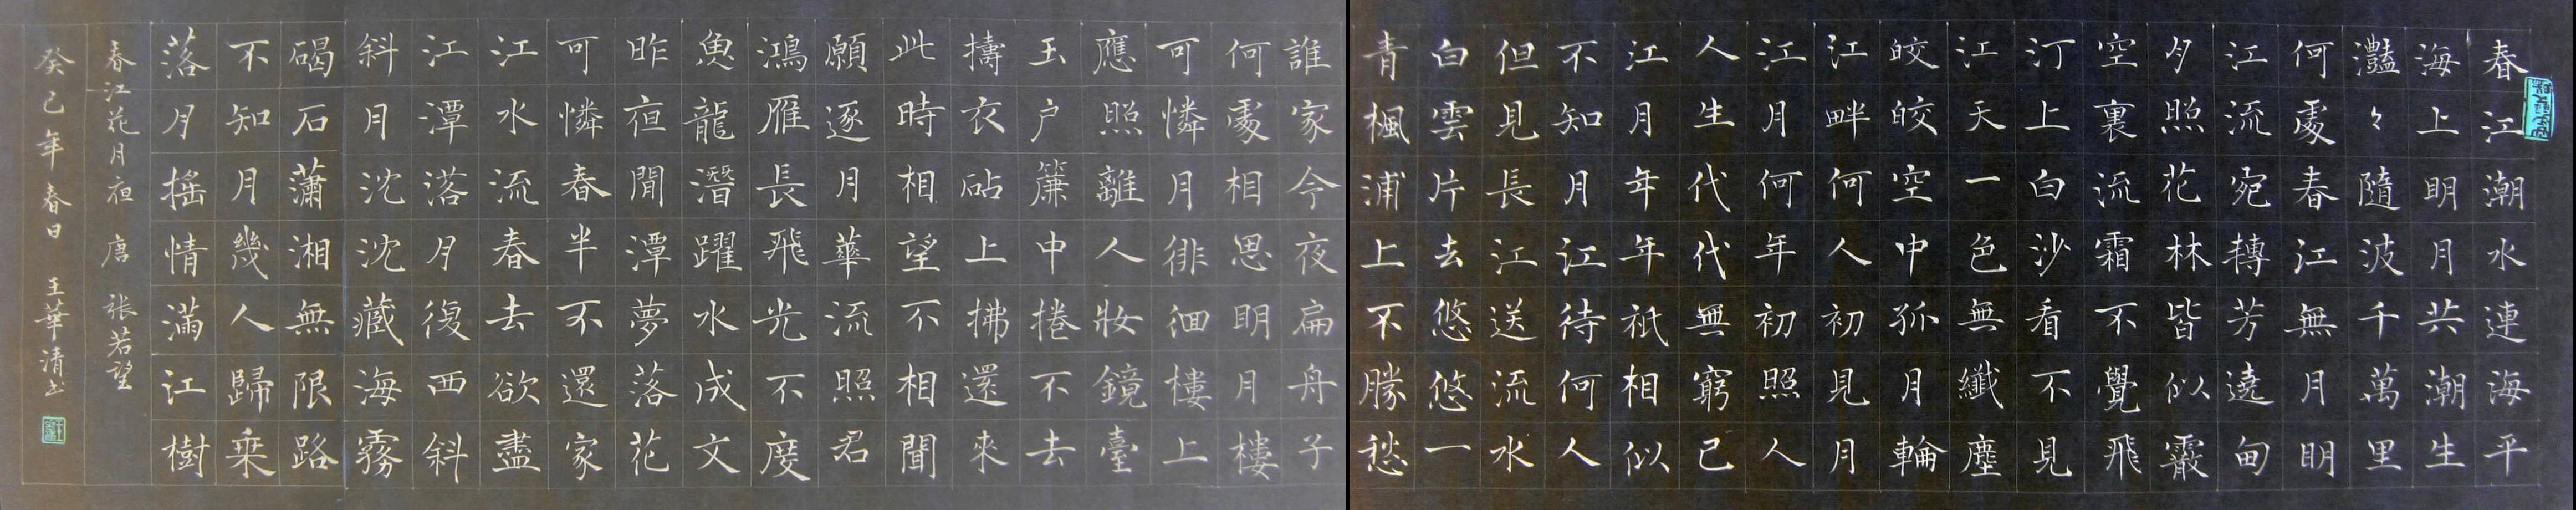 春江潮水連海平
海上明月共潮生
灩〻隨波千萬里
何處春江無月明
江流宛轉遶芳甸
月照花林皆似霰
空裏流霜不覺飛
汀上白沙看不見
江天一色無纖塵
皎皎空中孤月輪
江畔何人初見月
江月何年初照人
人生代代無窮已
江月年年祇相似
不知月江待何人
但見長江送流水
白雲片去悠悠一
青楓浦上不勝愁
誰家今夜扁舟子
何處相思明月樓
可憐月徘徊樓上
應照離人妝鏡臺
玉户簾中捲不去
擣衣砧上拂還來
此時相望不相聞
願逐月華流照君
鴻雁長飛光不度
魚龍潛躍水成文
昨夜閒潭夢落花
可憐春半不還家
江水流春去欲盡
江潭落月復西斜
斜月沈沈藏海霧
碣石瀟湘無限路
不知月幾人歸乘
落月搖情滿江樹
春江花月夜 唐 張若望
癸巳年春日 王華清书